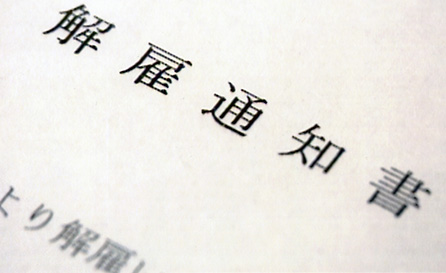 解雇通知書
より解雇し